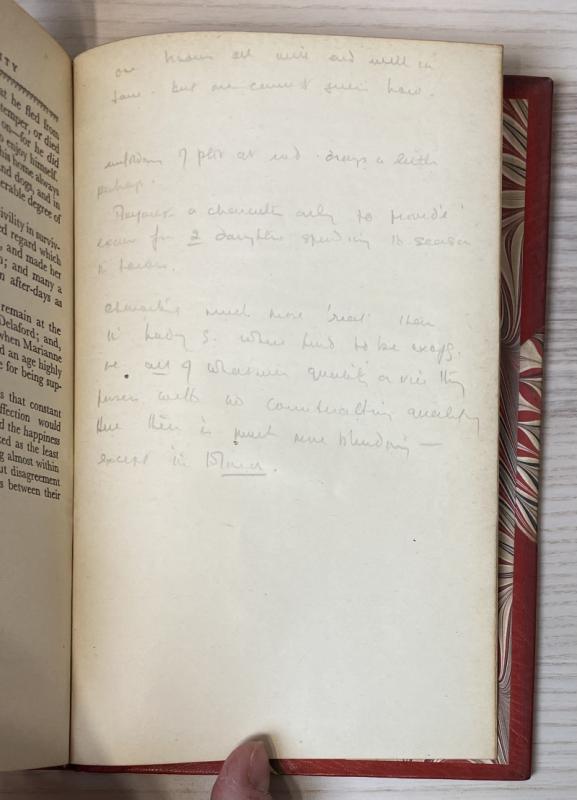 ITY
at he fled from
temper, or died
on—for he did
s enjoy himself.
his home always
nd dogs, and in
erable degree of
ivility in surviv-
ed regard which
, and made her
n; and many a
n after-days as
remain at the
Delaford; and,
when Marianne
d an age highly
e for being sup-
s that constant
ffection would
d the happiness
ced as the least
ng almost within
ut disagreement
s between their
one knows all will end well in
but one cannot see how.
unfolding of plot at end drags a little
perhaps.
a character only to provide
excuse for 2 daughters spending season
in
characters much more 'real' than
in Lady S. where tend to be exagg.
ie all of whatever quality or vice they
with no counteracting quality
Here there is much more blending —
except in